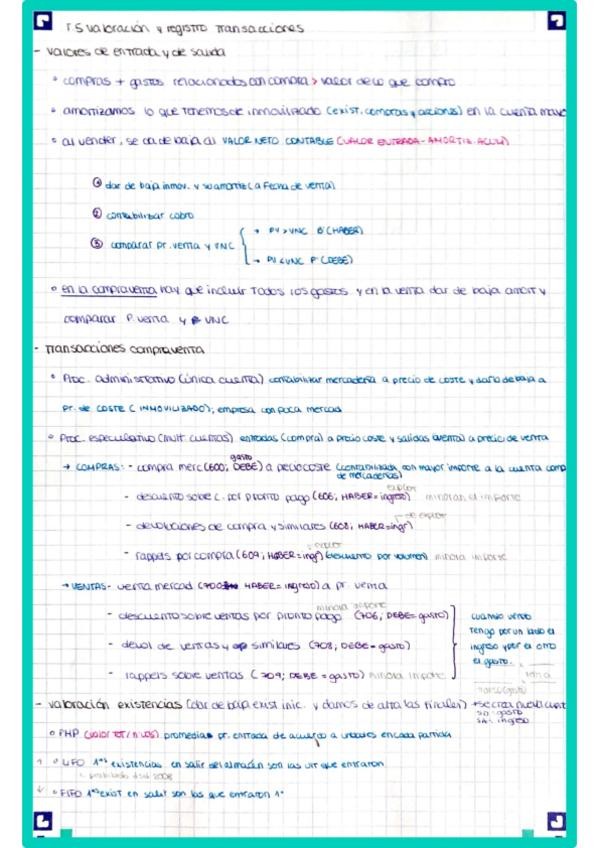 T.5 valoración y registro transacciones
- valores de entrada y de salida
• compras + gastos relacionados con compra > valor de lo que compro
• amortizamos lo que tenemos de inmovilizado (exist, compras y acciones) en la cuenta mayo
• al vender, se da de baja al VALOR NETO CONTABLE (VALOR ENTRADA - AMORTIZ. ACUM)
① dar de baja inmov. y su amortiz (a fecha de venta)
② contabilizar cobro
③ comparar pr. venta y VNC
→ PV > VNC Bº (HABER)
→ PV < VNC Pº (DEBE)
• en la compraventa hay que incluir todos los gastos y en la venta dar de baja amort y
comparar P. venta y VNC
- transacciones compraventa
• Proc. administrativo (única cuenta) contabilizar mercadería a precio de coste y darlo de baja a
pr. de COSTE (INMOVILIZADO); empresa con poca mercad
• Proc. especulativo (mult. cuentas) entradas (compra) a precio coste y salidas (venta) a precio de venta
gasto
→ COMPRAS: - compra merc (600; DEBE) a precio coste (contabilizada con mayor importe a la cuenta comp
de mercaderías)
explot
- descuento sobre c. por pronto pago (606; HABER = ingreso) minoran el importe
de explot
- devoluciones de compra y similares (608; HABER = ingr)
explot
- rappels por compra (609; HABER = ingr) (descuento por volumen) minora importe
→ VENTAS - venta mercad (700 HABER = ingreso) a pr. venta
minora importe
- descuento sobre ventas por pronto pago (706; DEBE = gasto)
- devol de ventas y similares (708; DEBE = gasto)
- rappels sobre ventas (709; DEBE = gasto) minora importe
cuando vendo
tengo por un lado el
ingreso y por el otro
el gasto.
- valoración existencias (dar de baja exist inic. y damos de alta las finales) → se crea nueva cuent
SD: gasto
SA: ingreso
• PMP (valor tot / nº uds) promedia pr. entrada de acuerdo a unidades en cada partida
↑ • LIFO 1ªˢ existencias en salir del almacén son las ult que entraron
prohibido dsd 2008
↓ • FIFO 1ªˢ exist en salir son las que entraron 1º